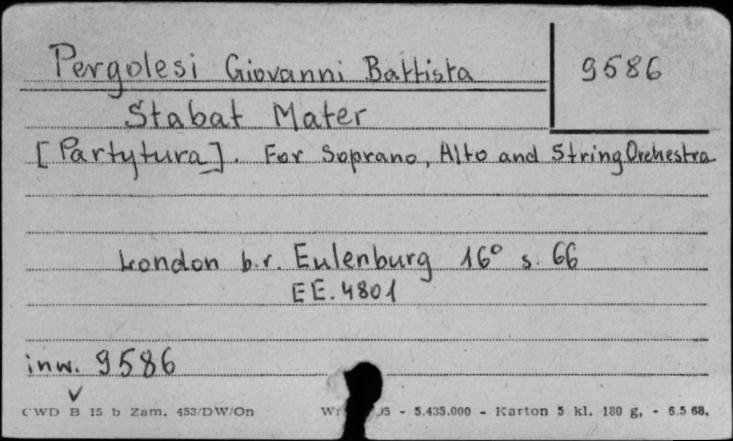 Pergolesi Giovanni Battista
9586
Stabat Mater
[Partytura]. For Soprano, Alto and String Orchestra
London b.r. Eulenburg 16° s. 66
EE. 4801
inw. 9586
CWD B 15 b Zam. 453/DW/On 5.435.000 - Karton 5 kl. 180 g, - 6.5 68.